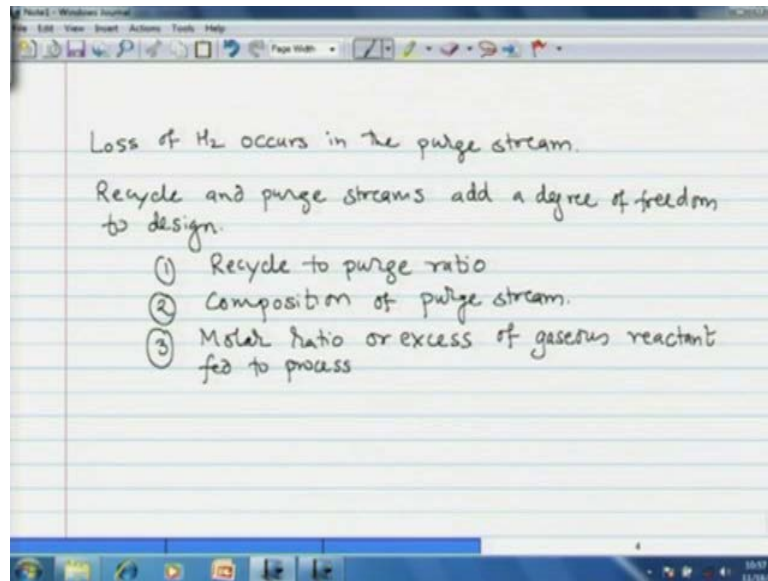 Note1 - Windows Journal
File Edit View Insert Actions Tools Help
Page Width
Loss of H2 occurs in the purge stream.
Recycle and purge streams add a degree of freedom
to design.
① Recycle to purge ratio
② Composition of purge stream.
③ Molar Ratio or excess of gaseous reactant
fed to process
4
10:57